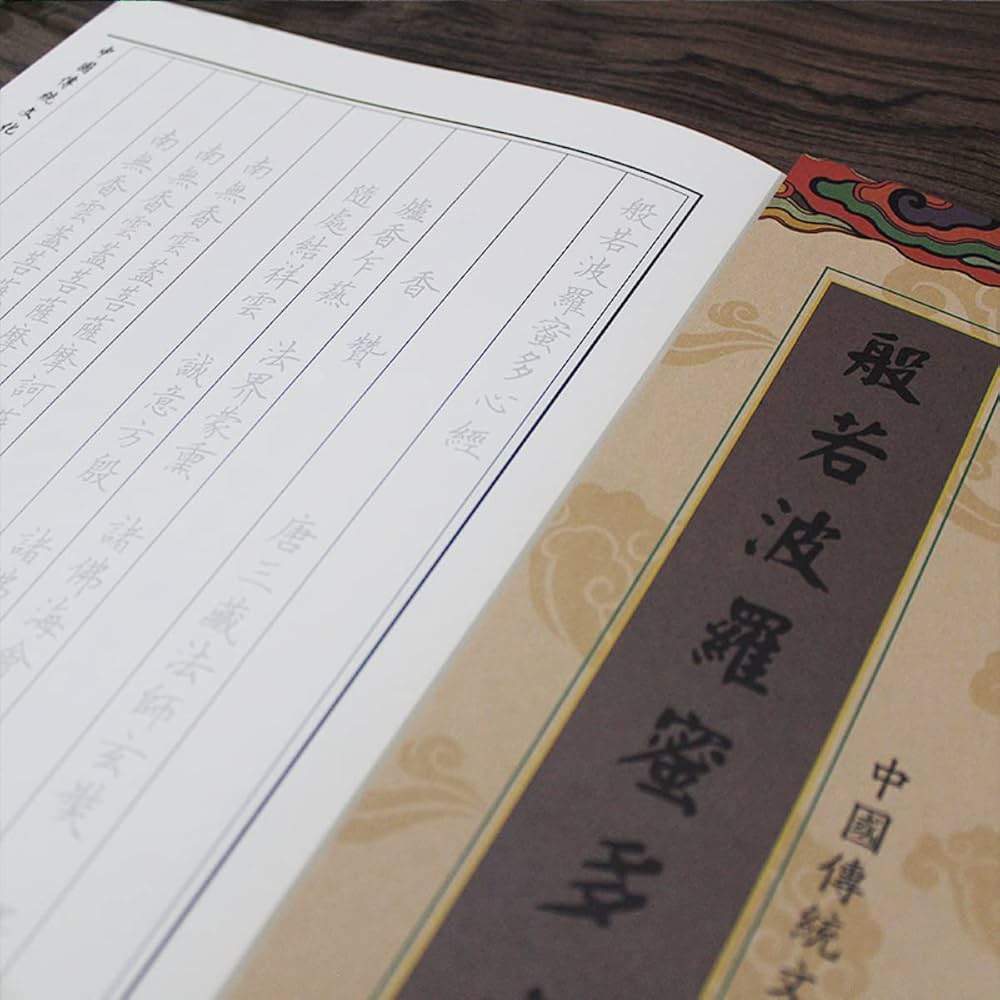 般若波羅蜜多
中國傳統文
般若波羅蜜多心經
唐三藏法師玄奘
香贊
爐香乍爇 法界蒙熏 諸佛海會
隨處結祥雲 誠意方殷 諸佛
南無香雲蓋菩薩摩訶薩
南無香雲蓋菩薩摩訶
南無香雲蓋菩薩摩
中國傳統文化